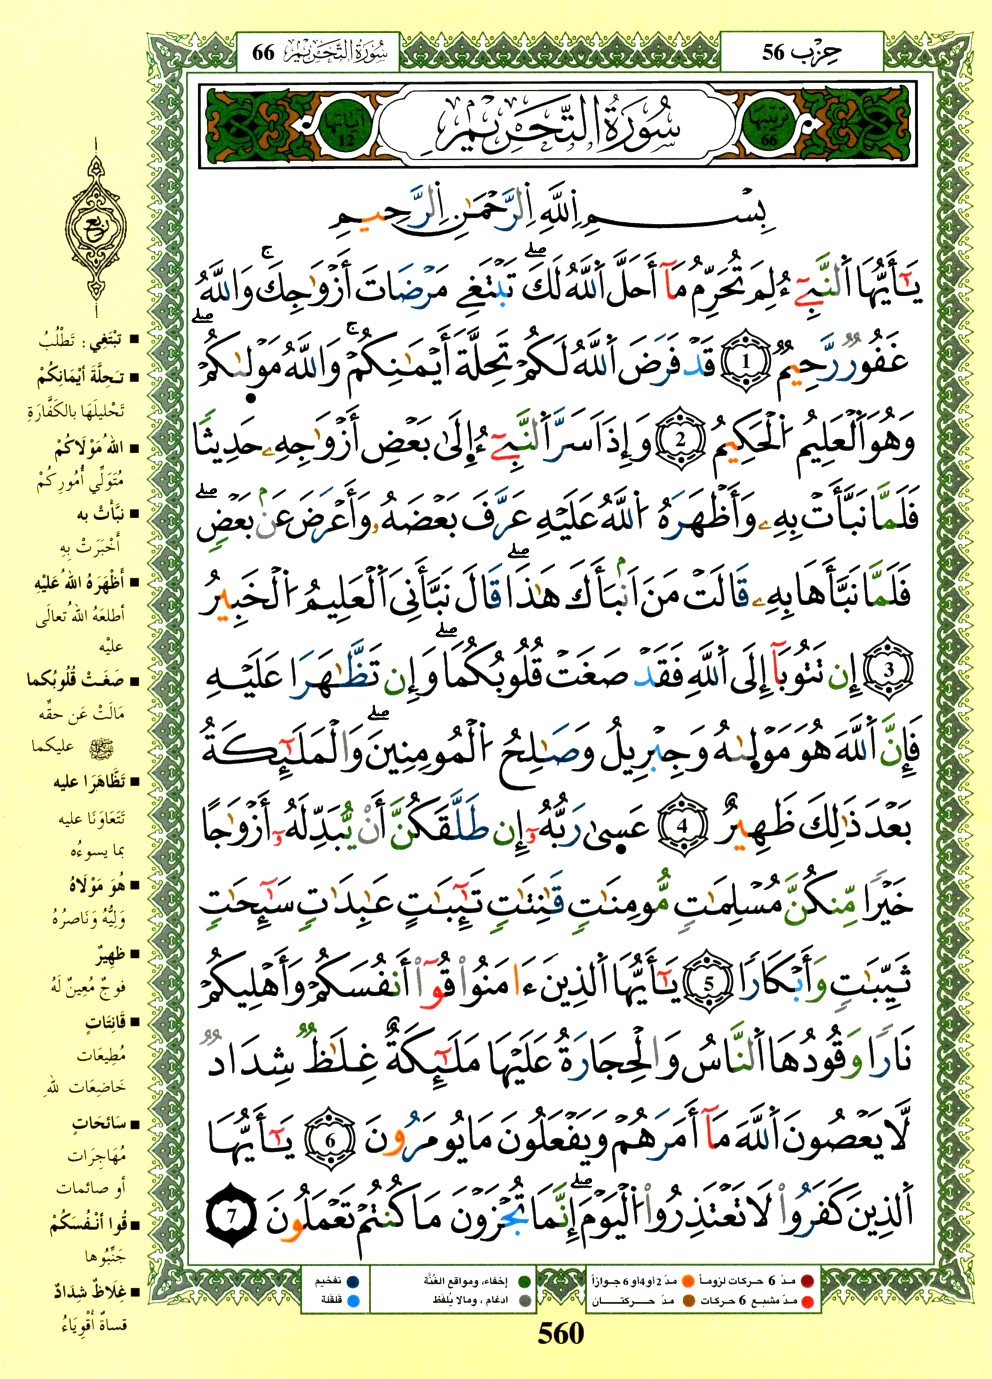 سُورَةُ التَّحْرِيمِ 66
حِزْب 56
ترتيبها 66
سُورَةُ التَّحْرِيمِ
آياتها 12
بِسْمِ اِللَّهِ اِلرَّحْمَٰنِ اِلرَّحِيمِ
يَٰٓأَيُّهَا اَلنَّبِےٓءُ لِمَ تُحَرِّمُ مَآ أَحَلَّ اَللَّهُ لَكَۖ تَبْتَغِے مَرْضَاتَ أَزْوَٰجِكَۚ وَاللَّهُ
غَفُورٞ رَّحِيمٞۖ 1 قَدْ فَرَضَ اَللَّهُ لَكُمْ تَحِلَّةَ أَيْمَٰنِكُمْۚ وَاللَّهُ مَوْل۪يٰكُمْۖ
وَهُوَ اَلْعَلِيمُ اُلْحَكِيمُ 2 وَإِذَ اَسَرَّ اَلنَّبِےٓءُ اِلَىٰ بَعْضِ أَزْوَٰجِهِۦ حَدِيثاٗ
فَلَمَّا نَبَّأَتْ بِهِۦ وَأَظْهَرَهُ اُللَّهُ عَلَيْهِ عَرَّفَ بَعْضَهُۥ وَأَعْرَضَ عَنۢ بَعْضٖۖ
فَلَمَّا نَبَّأَهَا بِهِۦ قَالَتْ مَنَ اَنۢبَأَكَ هَٰذَاۖ قَالَ نَبَّأَنِيَ اَلْعَلِيمُ اُلْخَبِيرُ
3 إِن تَتُوبَآ إِلَى اَللَّهِ فَقَدْ صَغَتْ قُلُوبُكُمَاۖ وَإِن تَظَّٰهَرَا عَلَيْهِ
فَإِنَّ اَللَّهَ هُوَ مَوْل۪يٰهُ وَجِبْرِيلُ وَصَٰلِحُ اُلْمُومِنِينَۖ وَالْمَلَٰٓئِكَةُ
بَعْدَ ذَٰلِكَ ظَهِيرٌ 4 عَس۪يٰ رَبُّهُۥٓ إِن طَلَّقَكُنَّ أَنْ يُّبَدِّلَهُۥٓ أَزْوَٰجاً
خَيْراٗ مِّنكُنَّ مُسْلِمَٰتٖ مُّومِنَٰتٖ قَٰنِتَٰتٖ تَٰٓئِبَٰتٍ عَٰبِدَٰتٖ سَٰٓئِحَٰتٖ
ثَيِّبَٰتٖ وَأَبْكَاراٗ 5 يَٰٓأَيُّهَا اَلذِينَ ءَامَنُواْ قُوٓاْ أَنفُسَكُمْ وَأَهْلِيكُمْ
نَاراٗ وَقُودُهَا اَلنَّاسُ وَالْحِجَارَةُ عَلَيْهَا مَلَٰٓئِكَةٌ غِلَٰظٞ شِدَادٞ
لَّا يَعْصُونَ اَللَّهَ مَآ أَمَرَهُمْ وَيَفْعَلُونَ مَا يُومَرُونَ 6 يَٰٓأَيُّهَا
اَلذِينَ كَفَرُواْ لَا تَعْتَذِرُواْ اُلْيَوْمَۖ إِنَّمَا تُجْزَوْنَ مَا كُنتُمْ تَعْمَلُونَ 7
ربع
■ تَبْتَغِي : تَطْلُبُ
■ تَحِلَّةَ أَيْمَانِكُمْ
تَحْلِيلَهَا بالكَفَّارَةِ
■ اللهُ مَوْلَاكُمْ
مُتَوَلِّي أُمُورِكُمْ
■ نَبَّأتْ به
أَخْبَرَتْ بِهِ
■ أَظْهَرَهُ اللهُ عَلَيْهِ
أطلعَهُ اللهُ تعالَى
عليْه
■ صَغَتْ قُلُوبُكما
مَالَتْ عَن حقِّه
ﷺ عليكما
■ تَظَّاهَرَا عليه
تَتَعَاوَنَا عليه
بما يسوءُه
■ هُوَ مَوْلَاهُ
وَلِيُّهُ وَنَاصِرُهُ
■ ظَهِيرٌ
فوجٌ مُعِينٌ لَهُ
■ قَانِتَاتٍ
مُطِيعَات
خَاضِعَات للهِ
■ سَائحَاتٍ
مُهَاجِرَات
أو صائمات
■ قُوا أنْفُسَكُمْ
جَنِّبُوها
■ غِلَاظٌ شِدَادٌ
قساةٌ أقْوِيَاءُ
مدّ 6 حركات لزوماً
مدّ 2 أو 4 أو 6 جوازاً
مدّ مشبع 6 حركات
مدّ حركتان
إخفاء، ومواقع الغُنَّة
ادغام ، ومالا يُلفَظ
تفخيم
قلقلة
560